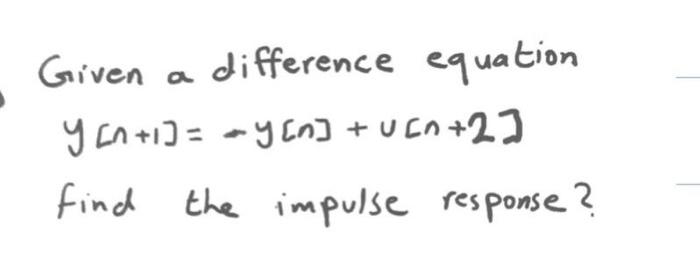 Given a difference equation
y[n+1] = -y[n] + u[n+2]
find the impulse response?